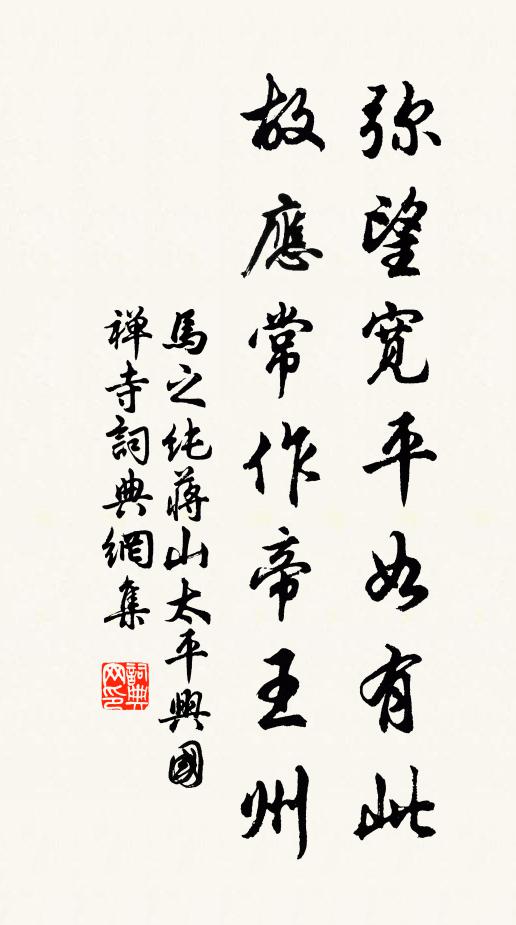 弥望寬平如有此
故應常作帝王州
馬之純蔣山太平興國
禅寺詞典網集
詞典网印